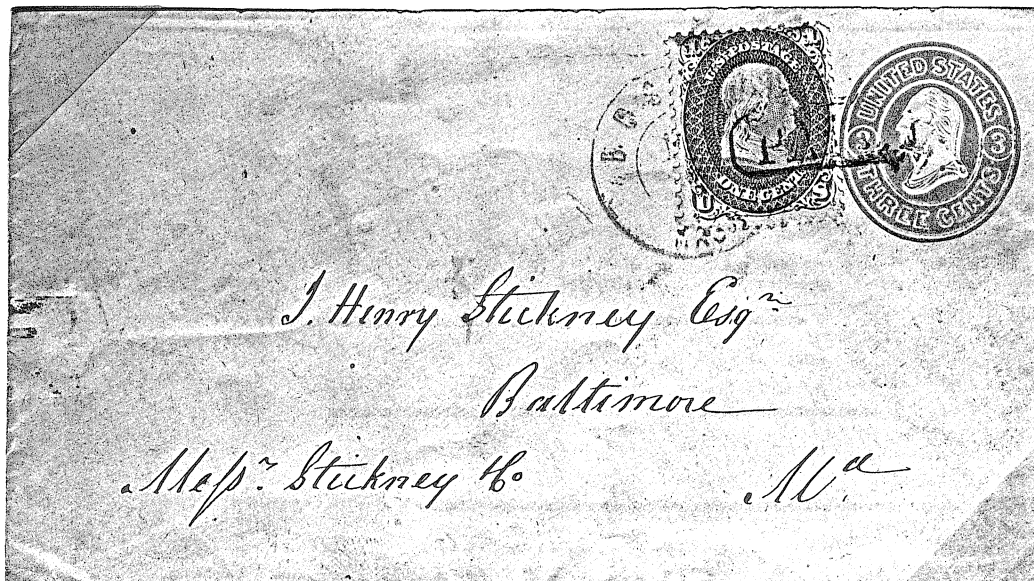 U.S. POSTAGE
ONE CENT
U
UNITED STATES
3 3
THREE CENTS
J. Henry Stickney Esqr
Baltimore
Messrs Stickney & Co
Md.